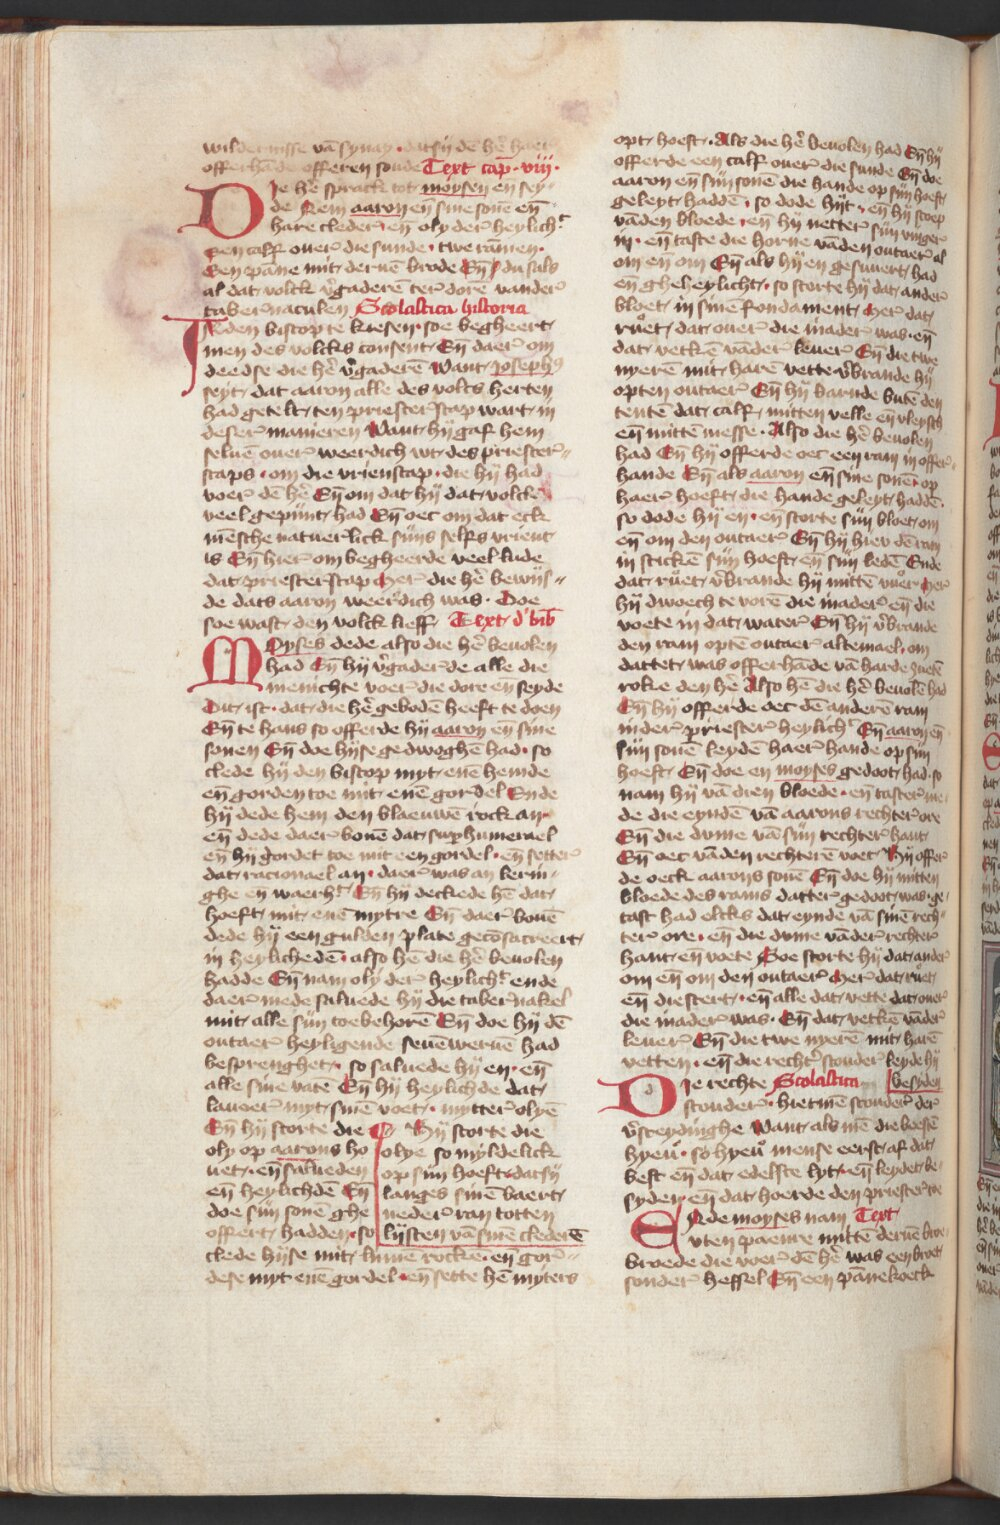 wildernisse vā synay · datsij de hē haer
offerhāde offeren soude Text cap̄ · viij ·
Die hē sprack tot moysen eñ sey-
de Nem aaron eñ sine sonē eñ
hare cleder · eñ oly der heylich⁊
Een calf ouer die sunde · twe rāmen ·
Een pāne mit deruē brode Eñ du suls
al dat volck v̄gaderē ter dorē vander
tabernaculen Scolastica historia
In den biscop te kiesen · soe begheert
men des volcks consent Eñ daer om
deedse die hē v̄gaderē Want Joseph⁹
seyt dat aaron alle des volcs herten
had getelt ten priesterscap wart in
deser manieren Want hij gaf hem
seluē ouer weerdich wt des priester-
scaps · om die vrienscap · die hij had
voer dē hē Eñ om dat hij dat volcke
veel gepijnt had Eñ oec om dat eck
mēsche natuerlick sijns selfs vrient
is Eñ hier om begheerde veel lude
dat priesterscap Mer die hē bewijs-
de dats aaron weerdich was · Doe
soe wast den volck lieff Text d' bib
Moyses dede also die hē beuolen
had Eñ hij v̄gaderde alle die
menichte voer die dore eñ seyde
Dit ist · dat die hē gebodē heeft te doen
Eñ te hans so offerde hij aaron eñ sine
sonen Eñ doe hijse gedwoghē had · so
clede hij den biscop myt enē hemde
eñ gorden toe mit enē gordel Ende
hij dede hem den blaeuwē rock an
eñ dede daer bouē dat suphumerael
eñ hij gordet toe mit een gordel · eñ setter
dat racionael an · daer was an lerin-
ghe eñ waerh⁊ Eñ hij deckede hē dat
hoeft mit enē mytre Eñ daer bouē
dede hij een gulden plate gecōsacreert
in heylichedē · also hē die hē beuolen
hadde Eñ nam oly der heylich⁊ ende
daer mede saluede hij die tabernakel
mit alle sijn toebehorē Eñ doe hij dē
outaer heyligende seuēweruē had
besprenghet · so saluede hij en · eñ
alle sine vatē Eñ hij heylichde dat
lauoer myt sinē voet · mytter olyē
Eñ hij storte die
oly op aarons ho
uet · eñ salueden
eñ heylichdē Eñ
doe sijn sonē ghe
offert hadden · so
Hij storte die
olye so myldelick
op sijn hoeft · datsij
langes sinē baert
neder ran totten
lijsten vā sinē clederē
clede hijse mit linnē rockē · eñ gor-
dese myt enē gordel · eñ sette hē myters
opt hoeft · Als die hē beuolen had Eñ hij
offerde een calf ouer die sunde Eñ doe
aaron eñ sijn sonē die hande op sijn hoeft
geleyt haddē · so dode hijt · eñ hij scoep
vāden bloede · eñ hij netter sijn vinger
in · eñ taste die horne vāden outaer al
om eñ om Eñ als hij en gesuuert had
eñ gheheylicht · so storte hij dat ander
bloet in sinē fondament Mer dat
ruet dat ouer die inader was · eñ
dat vetkē vāder leuer Eñ die twe
nyerē mit harē vette v̄brande hij
opten outaer Eñ hij barnde butē den
tentē dat calf mitten velle eñ vleysch
eñ mittē messe · Also die hē beuolen
had Eñ hij offerde oec een ram in offer-
hande Eñ als aaron eñ sine sonē · op
haer hoeft die hande geleyt haddē ·
so dode hij en · eñ storte sijn bloet om
eñ om den outaer Eñ hij hiev dē ram
in stickē sijn hoeft eñ sijn ledē Ende
dat ruet v̄brande hij mittē vuer Mer
hij dwoech te vorē die inader eñ die
voete in dat water Eñ hij v̄brande
den ram optē outaer altemael om
dattet was offerhāde vā harde zuetē
roke den hē Also hē die hē beuolē had
Eñ hij offerde oec dē anderē ram
in der priester heylich⁊ Eñ aaron eñ
sijn sonē leydē haer hande op sijn
hoeft Eñ doe en moyses gedoot had · so
nam hij vā dien bloede · eñ taster me
de die eyndē vā aarons rechter ore
Eñ die dume vā sijn rechter hant
Eñ oec vāden rechterē voet Hij offer
de oeck aarons sonē Eñ doe hij mitten
bloede des rams datter gedoot was · ge-
tast had elcks dat eynde vā sinē rech-
ter ore · eñ die dume vāder rechter
hant · eñ voete Soe storte hij dat ander
om eñ om den outaer Mer dat ruet
eñ die stert · eñ alle dat vette dat ouer
die inader was · Eñ dat vetkē vāder
leuer Eñ die twe nyerē mit harē
vetten · eñ die recht⁊ scouder leyde hij
besyden
Die rechte Scolastica
scouder · hietmē scouder der
v̄sceydinghe Want als mē die beesē
hyeu · so hyeu mense eerst af dat
best eñ dat edelste lyt · eñ leydet be-
syden eñ dat hoerde den priester toe
Ende moyses nam Text
vten paenre mittē deruē broe
broede die voer dē hē was een broet
sonder heffel Eñ een pānekoeck